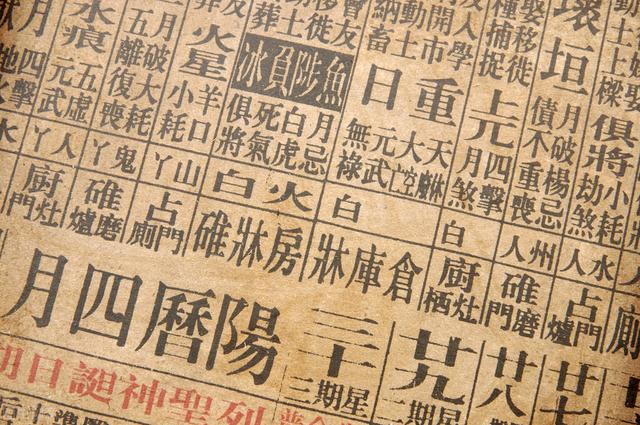 小耗
劫煞
俱將
水人
占門爐
廿七
壞垣
月破楊忌
債不重喪
州人
碓磨門
廿八
娶移徙
種捕捉
上元
四擊
月煞
白
廚灶栖
廿九
星期二
人學
開市
動土
納畜
重日
天
大空
元武
無祿
白
倉庫牀
三十
星期三
魚陟負冰
月忌
白虎
死氣
俱將
火白
房牀碓
火星
羊口
小耗
山丫
占門廁
月破大耗
五離復喪
鬼丫
碓磨爐
水痕
五虛
元武
人丫
廚灶門
月
四擊
水
陽曆四月
列聖神誕日